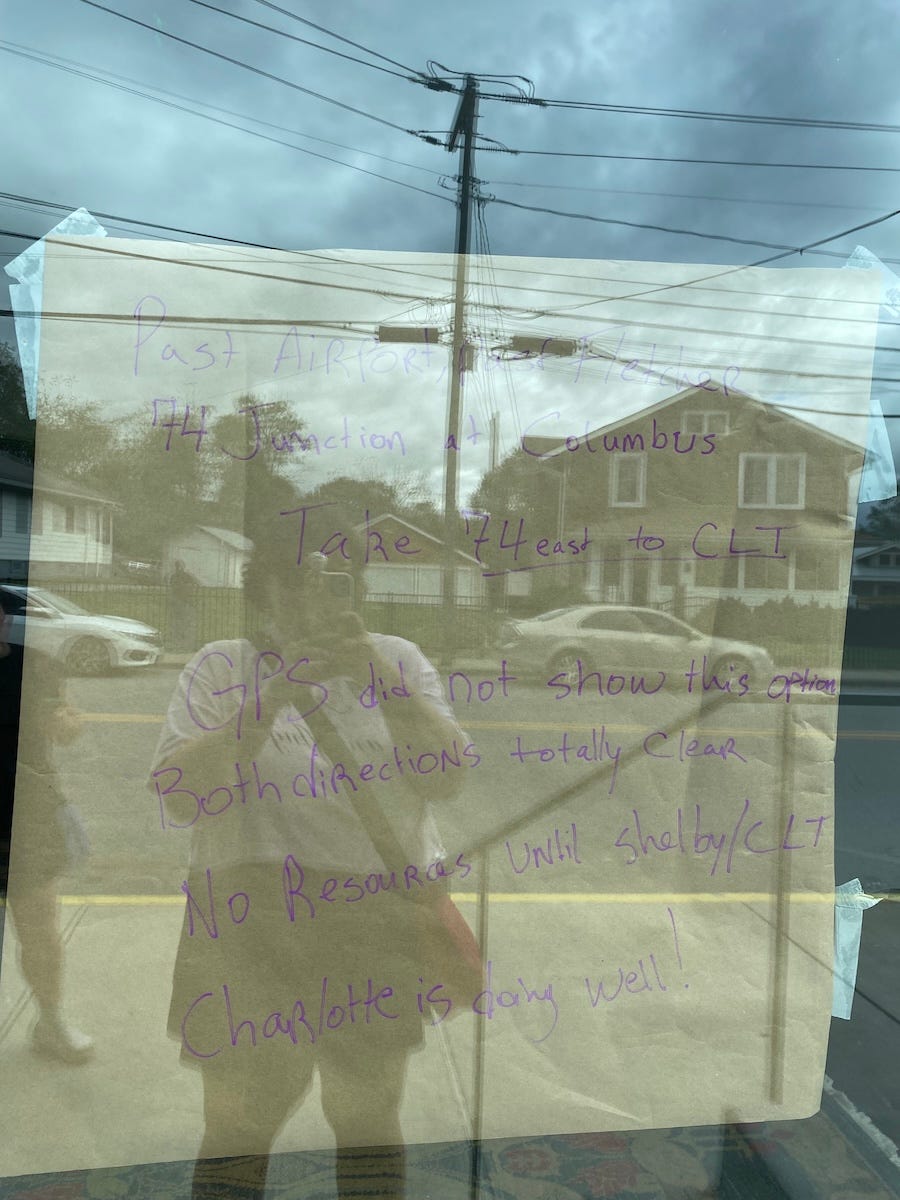 Past Airport, past Fletcher
74 Junction at Columbus
Take 74 east to CLT
GPS did not show this option
Both directions totally Clear
No Resources until shelby/CLT
Charlotte is doing well!